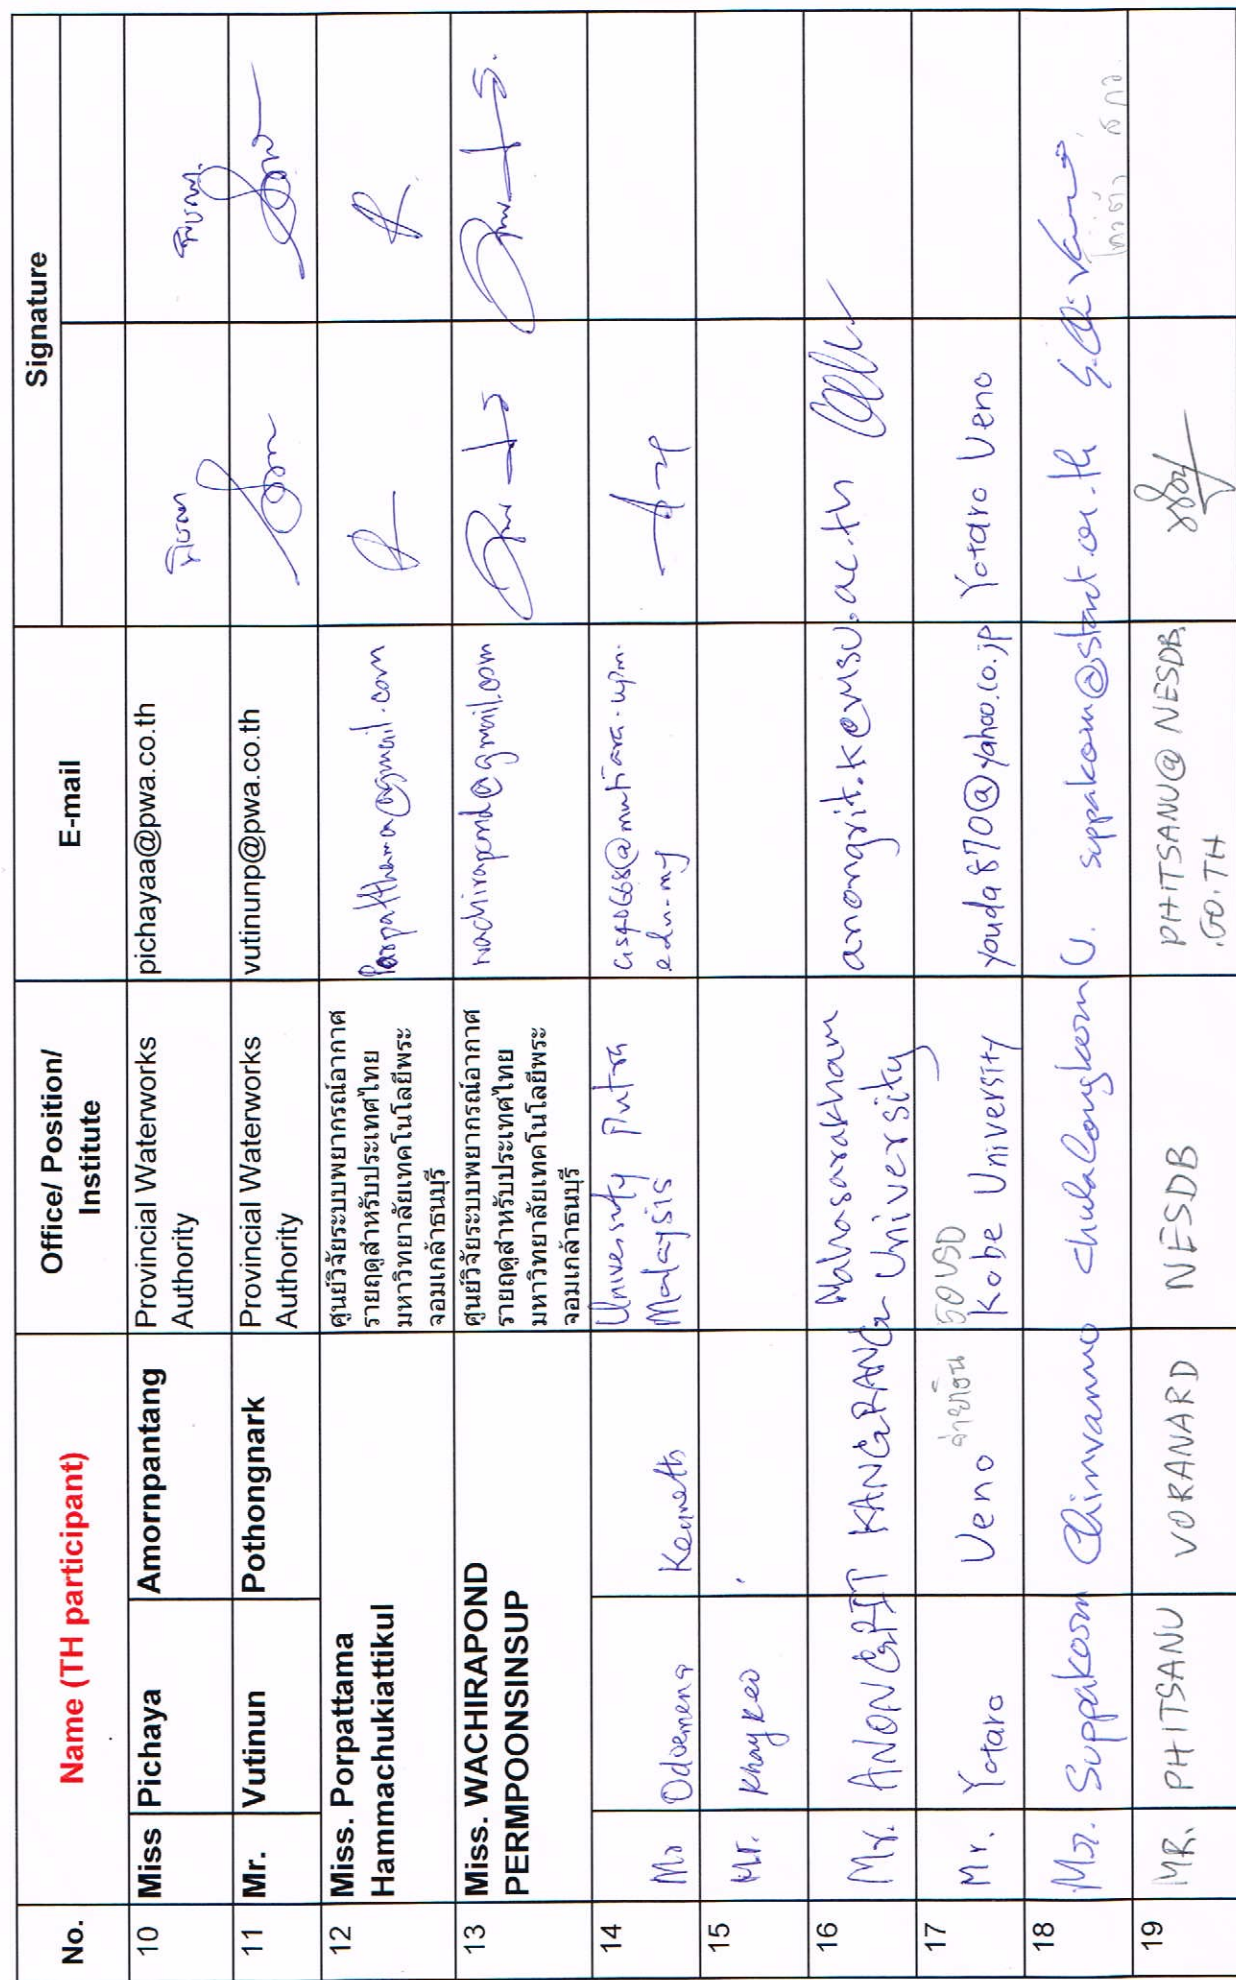 No.
Name (TH participant)
Office/ Position/
Institute
E-mail
Signature
10
Miss Pichaya Amornpantang
Provincial Waterworks
Authority
pichayaa@pwa.co.th
11
Mr. Vutinun Pothongnark
Provincial Waterworks
Authority
vutinunp@pwa.co.th
12
Miss. Porpattama
Hammachukiattikul
ศูนย์วิจัยระบบพยากรณ์อากาศ
รายฤดูสำหรับประเทศไทย
มหาวิทยาลัยเทคโนโลยีพระ
จอมเกล้าธนบุรี
porpattama@gmail.com
13
Miss. WACHIRAPOND
PERMPOONSINSUP
ศูนย์วิจัยระบบพยากรณ์อากาศ
รายฤดูสำหรับประเทศไทย
มหาวิทยาลัยเทคโนโลยีพระ
จอมเกล้าธนบุรี
wachirapond@gmail.com
14
Mr Kenneth
University Putra
Malaysia
edu.my
15
Mr. Khaykeo
16
Mr. ANONGRIT KANGRANG
Mahasarakham
University
anongrit.k@msu.ac.th
17
Mr. Yotaro Ueno
Kobe University
youda870@yahoo.co.jp
Yotaro Ueno
18
Mr. Suppakorn Chinvanno
Chulalongkorn U.
suppakorn@start.or.th
19
MR. PHITSANU VORANARD
NESDB
PHITSANU@NESDB
.GO.TH